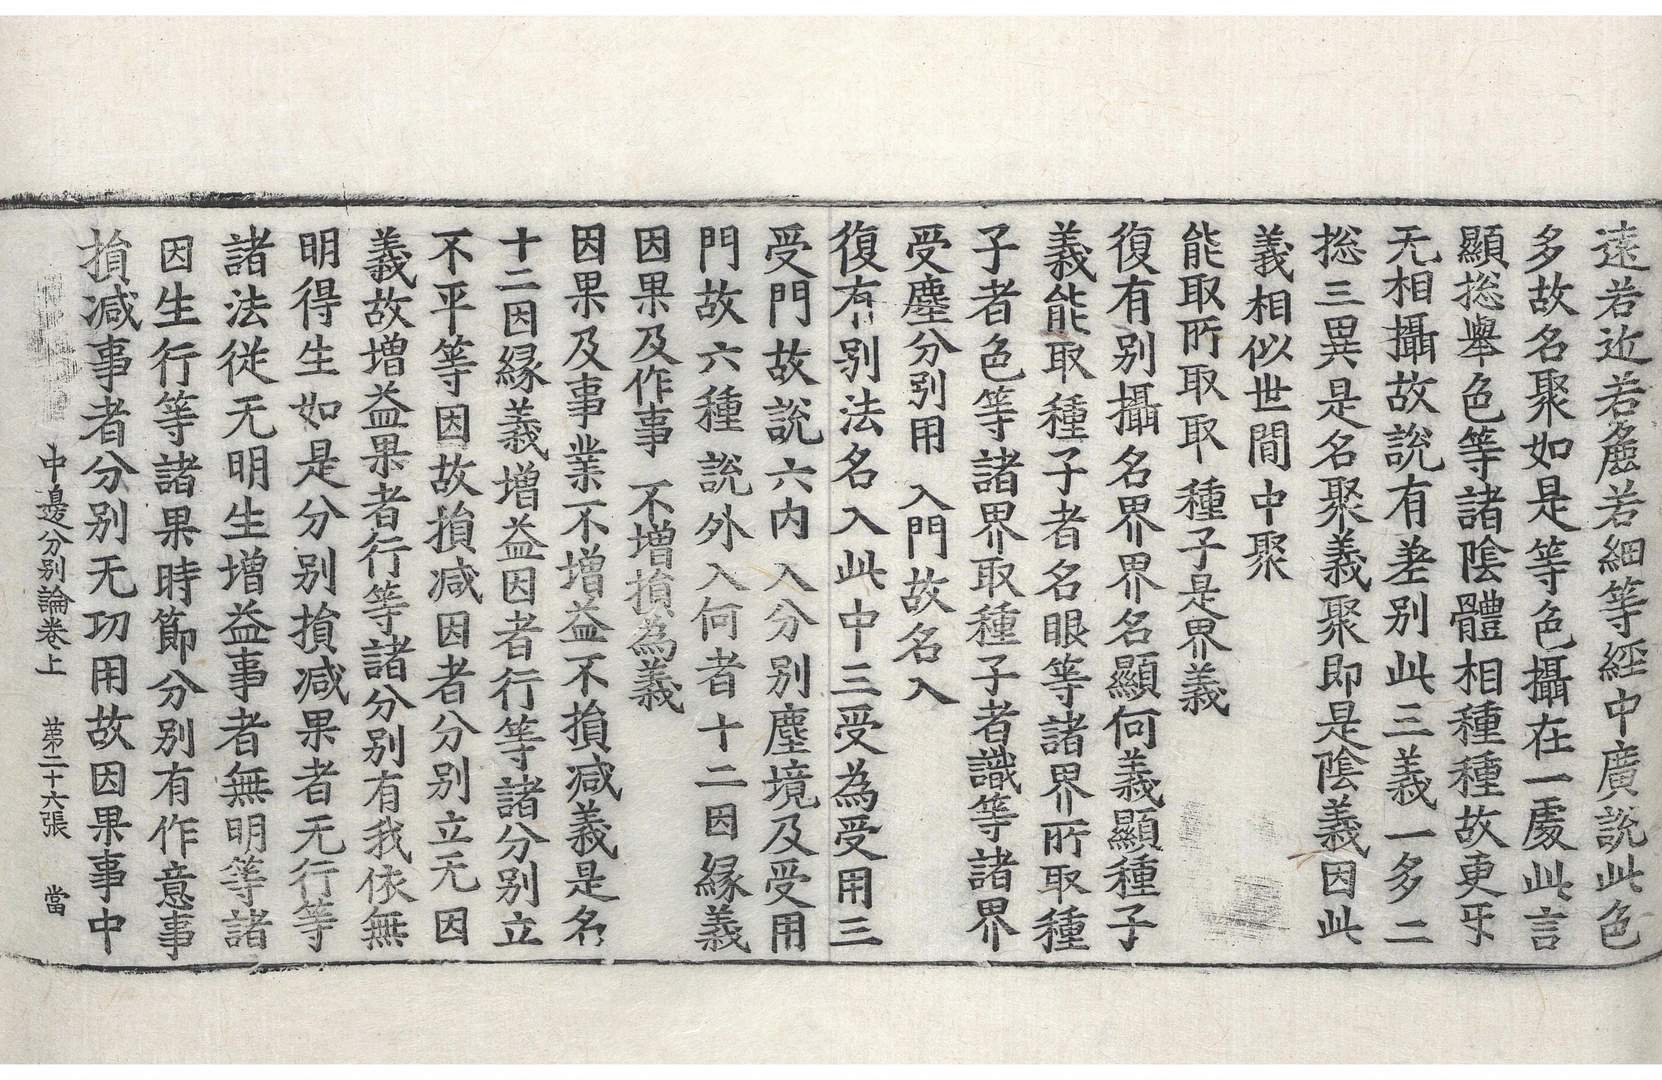 遠若近若麁若細等經中廣說此色
多故名聚如是等色攝在一處此言
顯㧾舉色等諸陰體相種種故更牙
无相攝故說有差別此三義一多二
㧾三異是名聚義聚即是陰義因此
義相似世間中聚
能取所取取 種子是界義
復有別攝名界界名顯何義顯種子
義能取種子者名眼等諸界所取種
子者色等諸界取種子者識等諸界
受塵分別用 入門故名入
復有別法名入此中三受為受用三
受門故說六內 入分別塵境及受用
門故六種說外入何者十二因縁義
因果及作事 不增損為義
因果及事業不增益不損減義是名
十二因縁義增益因者行等諸分別立
不平等因故損減因者分別立无因
義故增益果者行等諸分別有我依無
明得生如是分別損減果者无行等
諸法從无明生增益事者無明等諸
因生行等諸果時節分別有作意事
損減事者分別无功用故因果事中
中邊分別論卷上 苐二十六張 當